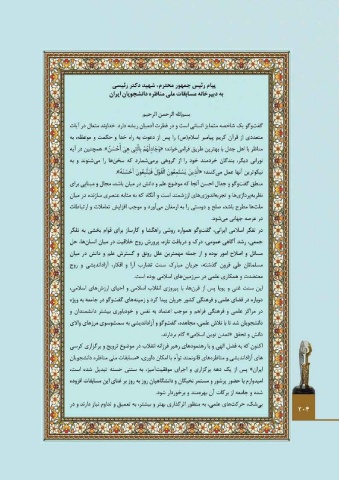 پیام رئیس جمهور محترم، شهید دکتر رئیسی
به دبیرخانه مسابقات ملی مناظره دانشجویان ایران
بسم‌الله الرحمن الرحیم
گفت‌وگو یک شاخصه متمایز انسانی است و در فطرت آدمیان ریشه دارد. خداوند متعال در آیات
متعددی از قرآن کریم پیامبر اسلام(ص) را پس از دعوت به راه خدا و حکمت و موعظه، به
مناظره با اهل جدل با بهترین طریق فرامی‌خواند: «وَجَادِلْهُم بِالَّتِي هِيَ أَحْسَنُ». همچنین در آیه
نورانی دیگر، بندگان خردمند خود را از گروهی برمی‌شمارد که سخن‌ها را می‌شنوند و به
نیکوترین آنها عمل می‌کنند: «الَّذِينَ يَسْتَمِعُونَ الْقَوْلَ فَيَتَّبِعُونَ أَحْسَنَهُ».
منطق گفت‌وگو و جدال احسن آنجا که موضوع علم و دانش در میان باشد، مجال و مبنایی برای
نظریه‌پردازی‌ها و تجربه‌اندوزی‌های ارزشمند است و آنگاه که به مثابه عنصری سازنده در میان
ملت‌ها مطرح باشد، صلح و دوستی را به ارمغان می‌آورد و موجب افزایش تعاملات و ارتباطات
در عرصه جهانی می‌شود.
در تفکر اسلامی ایرانی، گفت‌وگو همواره روشی راهگشا و کارساز برای قوام بخشی به تفکر
جمعی، رشد آگاهی عمومی، درک و دریافت تازه، پرورش روح خلاقیت در میان انسان‌ها، حل
مسائل و اصلاح امور بوده و از جمله مهمترین علل رونق و گسترش علم و دانش در میان
مسلمانان طی قرون گذشته، جریان مبارک سنت تضارب آرا و افکار، آزاداندیشی و روح
معتقدت و همکاری علمی در سرزمین‌های اسلامی بوده است.
این سنت غنی و پویا پس از قرن‌ها، با پیروزی انقلاب اسلامی و احیای ارزش‌های اسلامی،
دوباره در فضای علمی و فرهنگی کشور جریان پیدا کرد و زمینه‌های گفت‌وگو در جامعه به ویژه
در مراکز علمی و فرهنگی فراهم و موجب اعتماد به نفس و خودباوری بیشتر دانشمندان و
دانشجویان شد تا با تلاش علمی، مجاهدت، گفت‌وگو و آزاداندیشی به سمت‌وسوی مرزهای والای
دانش و تحقق «تمدن نوین اسلامی» گام بردارند.
اکنون که به فضل الهی و با رهنمودهای رهبر فرزانه انقلاب در موضوع ترویج و برگزاری کرسی
های آزاداندیشی و مناظره‌های قانونمند توأم با امکان داوری، «مسابقات ملی مناظره دانشجویان
ایران» پس از یک دهه برگزاری و اجرای موفقیت‌آمیز، به سنتی حسنه تبدیل شده است،
امیدوارم با حضور پرشور و مستمر نخبگان و دانشگاهیان روز به روز بر غنای این مسابقات افزوده
شده و جامعه از برکات آن بهره‌مند و برخوردار شود.
بی‌شک، حرکت‌های علمی، به منظور اثرگذاری بهتر و بیشتر، به تعمیق و تداوم نیاز دارند و در
۲۰۴